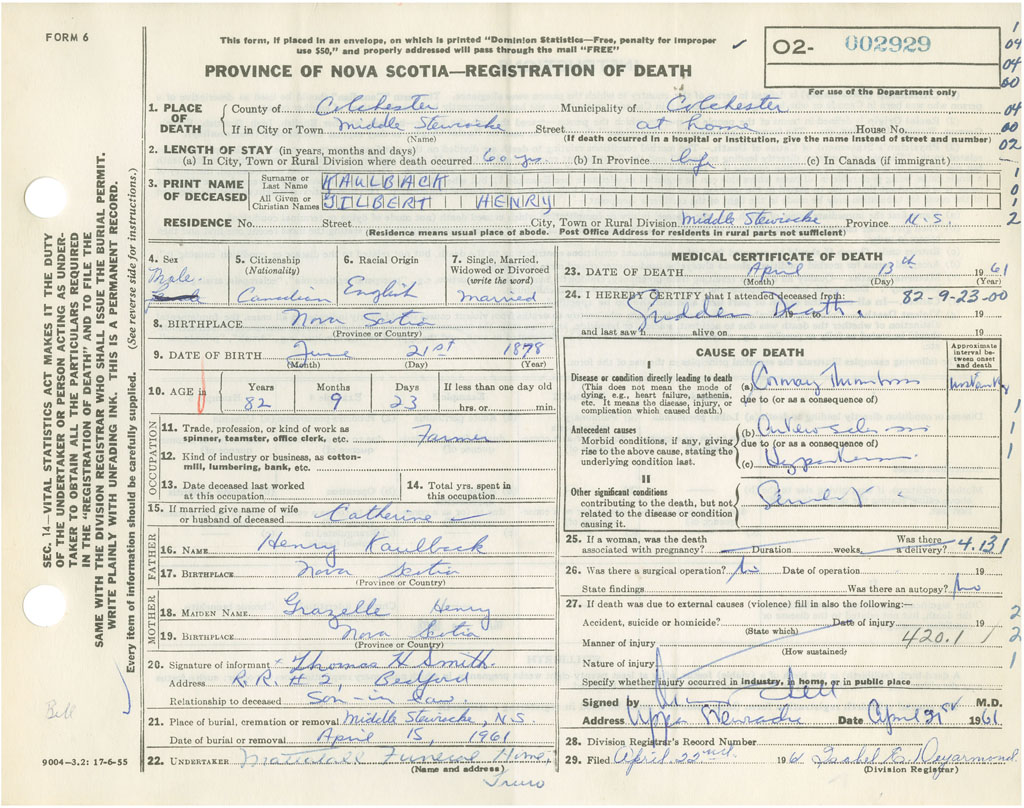 FORM 6
This form, if placed in an envelope, on which is printed "Dominion Statistics—Free, penalty for improper
use $50," and properly addressed will pass through the mail "FREE"
PROVINCE OF NOVA SCOTIA—REGISTRATION OF DEATH
02- 002929
For use of the Department only
1
04
04
60
04
00
02
1. PLACE OF DEATH County of Colchester Municipality of Colchester
If in City or Town Middle Stewiacke Street at home House No.
(Name) (If death occurred in a hospital or institution, give the name instead of street and number)
2. LENGTH OF STAY (in years, months and days)
(a) In City, Town or Rural Division where death occurred 60 yrs. (b) In Province life (c) In Canada (if immigrant) —
3. PRINT NAME OF DECEASED Surname or Last Name KAULBACK
All Given or Christian Names GILBERT HENRY
RESIDENCE No. Street City, Town or Rural Division Middle Stewiacke Province N.S. 2
(Residence means usual place of abode. Post Office Address for residents in rural parts not sufficient)
4. Sex Male
5. Citizenship (Nationality) Canadian
6. Racial Origin English
7. Single, Married, Widowed or Divorced (write the word) married
8. BIRTHPLACE Nova Scotia
(Province or Country)
9. DATE OF BIRTH June 21st 1878
(Month) (Day) (Year)
10. AGE in Years 82 Months 9 Days 23 If less than one day old hrs. or min.
OCCUPATION
11. Trade, profession, or kind of work as spinner, teamster, office clerk, etc. Farmer
12. Kind of industry or business, as cotton-mill, lumbering, bank, etc.
13. Date deceased last worked at this occupation
14. Total yrs. spent in this occupation
15. If married give name of wife or husband of deceased Catherine
FATHER
16. NAME Henry Kaulback
17. BIRTHPLACE Nova Scotia
(Province or Country)
MOTHER
18. MAIDEN NAME Grazelle Henry
19. BIRTHPLACE Nova Scotia
(Province or Country)
20. Signature of informant Thomas H Smith
Address R.R. # 2, Bedford
Relationship to deceased Son-in law
21. Place of burial, cremation or removal Middle Stewiacke, N.S.
Date of burial or removal April 15, 1961
22. UNDERTAKER Funeral Home,
(Name and address)
Truro
MEDICAL CERTIFICATE OF DEATH
23. DATE OF DEATH April 13th 1961
(Month) (Day) (Year)
24. I HEREBY CERTIFY that I attended deceased from: 82-9-23-00
Sudden Death to 19
and last saw h alive on 19
CAUSE OF DEATH
Approximate interval between onset and death
I
Disease or condition directly leading to death
(This does not mean the mode of dying, e.g., heart failure, asthenia, etc. It means the disease, injury, or complication which caused death.)
(a)
due to (or as a consequence of)
Antecedent causes
Morbid conditions, if any, giving rise to the above cause, stating the underlying condition last.
(b)
due to (or as a consequence of)
(c)
II
Other significant conditions
contributing to the death, but not related to the disease or condition causing it.
25. If a woman, was the death associated with pregnancy? Duration weeks, Was there a delivery? 4.131
26. Was there a surgical operation? No Date of operation 19
State findings Was there an autopsy? No
27. If death was due to external causes (violence) fill in also the following:—
Accident, suicide or homicide? Date of injury 19
(State which)
Manner of injury 420.1
(How sustained)
Nature of injury
Specify whether injury occurred in industry, in home, or in public place
Signed by M.D.
Address Upper Stewiacke Date April 21st 1961
28. Division Registrar's Record Number
29. Filed April 22nd 1961 E. Deyarmond
(Division Registrar)
SEC. 14—VITAL STATISTICS ACT MAKES IT THE DUTY
OF THE UNDERTAKER OR PERSON ACTING AS UNDER-
TAKER TO OBTAIN ALL THE PARTICULARS REQUIRED
IN THE "REGISTRATION OF DEATH" AND TO FILE THE
SAME WITH THE DIVISION REGISTRAR WHO SHALL ISSUE THE BURIAL PERMIT.
WRITE PLAINLY WITH UNFADING INK. THIS IS A PERMANENT RECORD.
Every item of information should be carefully supplied. (See reverse side for instructions.)
Bill
9004—3.2: 17-6-55